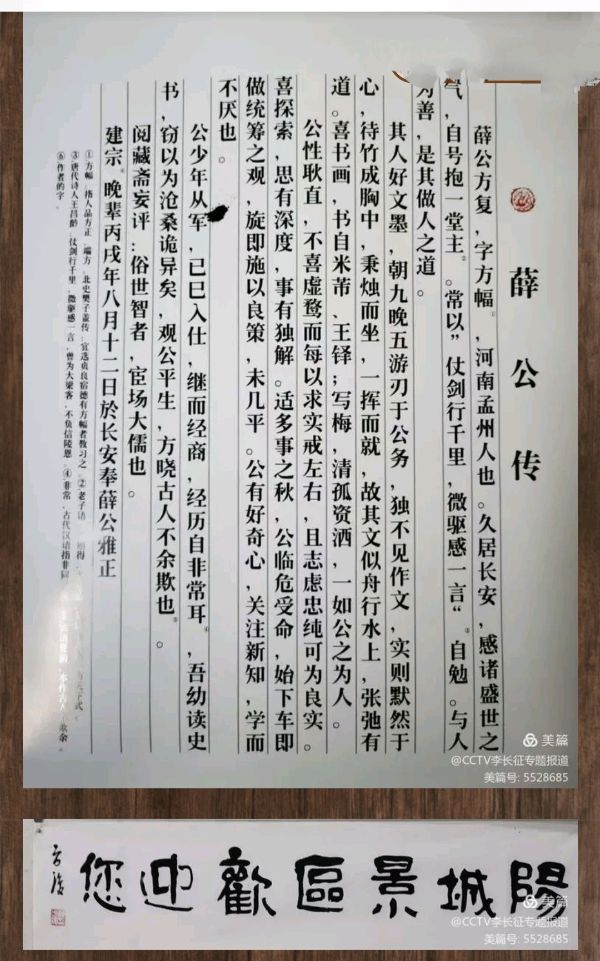 薛公传
薛公方复，字方幅①，河南孟州人也。久居长安，感诸盛世之
气，自号抱一堂主②。常以“仗剑行千里，微驱感一言”③自勉。与人
为善，是其做人之道。
其人好文墨，朝九晚五游刃于公务，独不见作文，实则默然于
心，待竹成胸中，秉烛而坐，一挥而就，故其文似舟行水上，张弛有
道。喜书画，书自米芾、王铎；写梅，清孤资洒，一如公之为人。
公性耿直，不喜虚骛而每以求实戒左右，且志虑忠纯可为良实。
喜探索，思有深度，事有独解。适多事之秋，公临危受命，始下车即
做统筹之观，旋即施以良策，未几平。公有好奇心，关注新知，学而
不厌也。
公少年从军，已巳入仕，继而经商，经历自非常耳④，吾幼读史
书，窃以为沧桑诡异矣，观公平生，方晓古人不余欺也⑤。
阅藏斋妄评：俗世智者，宦场大儒也。
建宗⑥晚辈丙戌年八月十二日於长安奉薛公雅正
①方幅，指人品方正、端方，北史樊子盖传：官选贞良宿德有方幅者教习之。②老子语
③唐代诗人王昌龄，仗剑行千里，微躯感一言，曾为大梁客，不负信陵恩。④非常，古代汉语指非同
⑥作者的字。
美篇
@CCTV李长征专题报道
美篇号: 5528685
陽城景區歡迎您
美篇
@CCTV李长征专题报道
美篇号: 5528685